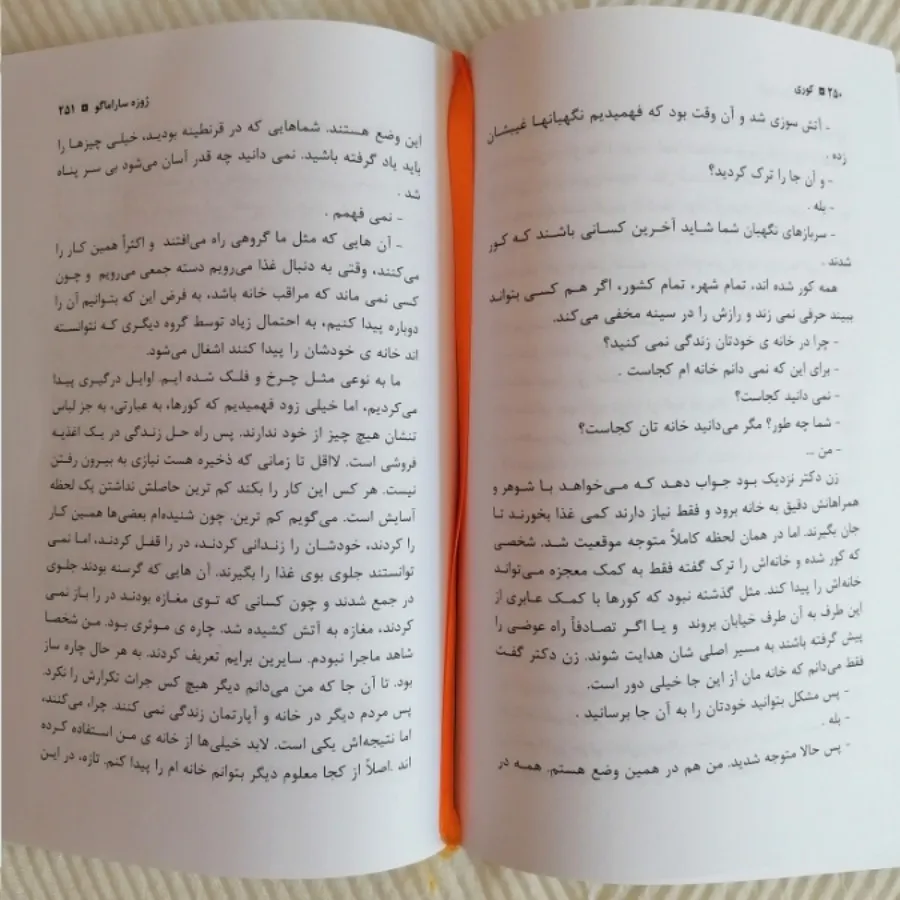 ۲۵۰ ◘ کوری
- آتش سوزی شد و آن وقت بود که فهمیدیم نگهبانها غیبشان
زده .
- و آن جا را ترک کردید؟
- بله .
- سربازهای نگهبان شما شاید آخرین کسانی باشند که کور
شدند .
همه کور شده اند، تمام شهر، تمام کشور، اگر هم کسی بتواند
ببیند حرفی نمی زند و رازش را در سینه مخفی می‌کند.
- چرا در خانه ی خودتان زندگی نمی کنید؟
- برای این که نمی دانم خانه ام کجاست .
- نمی دانید کجاست؟
- شما چه طور؟ مگر می‌دانید خانه تان کجاست؟
- من ...
زن دکتر نزدیک بود جواب دهد که می‌خواهد با شوهر و
همراهانش دقیق به خانه برود و فقط نیاز دارند کمی غذا بخورند تا
جان بگیرند. اما در همان لحظه کاملاً متوجه موقعیت شد. شخصی
که کور شده و خانه‌اش را ترک گفته فقط به کمک معجزه می‌تواند
خانه‌اش را پیدا کند. مثل گذشته نبود که کورها با کمک عابری از
این طرف به آن طرف خیابان بروند و یا اگر تصادفاً راه عوضی را
پیش گرفته باشند به مسیر اصلی شان هدایت شوند. زن دکتر گفت
فقط می‌دانم که خانه مان از این جا خیلی دور است.
- پس مشکل بتوانید خودتان را به آن جا برسانید .
- بله .
- پس حالا متوجه شدید. من هم در همین وضع هستم. همه در
ژوزه ساراماگو ◘ ۲۵۱
این وضع هستند. شماهایی که در قرنطینه بودید، خیلی چیزها را
باید یاد گرفته باشید. نمی دانید چه قدر آسان می‌شود بی سر پناه
شد .
- نمی فهمم .
- آن هایی که مثل ما گروهی راه می‌افتند و اکثراً همین کار را
می‌کنند، وقتی به دنبال غذا می‌رویم دسته جمعی می‌رویم و چون
کسی نمی ماند که مراقب خانه باشد، به فرض این که بتوانیم آن را
دوباره پیدا کنیم، به احتمال زیاد توسط گروه دیگری که نتوانسته
اند خانه ی خودشان را پیدا کنند اشغال می‌شود.
ما به نوعی مثل چرخ و فلک شده ایم. اوایل درگیری پیدا
می‌کردیم، اما خیلی زود فهمیدیم که کورها، به عبارتی، به جز لباس
تنشان هیچ چیز از خود ندارند. پس راه حل زندگی در یک اغذیه
فروشی است. لااقل تا زمانی که ذخیره هست نیازی به بیرون رفتن
نیست. هر کس این کار را بکند کم ترین حاصلش نداشتن یک لحظه
آسایش است. می‌گویم کم ترین. چون شنیده‌ام بعضی‌ها همین کار
را کردند، خودشان را زندانی کردند، در را قفل کردند، اما نمی
توانستند جلوی بوی غذا را بگیرند. آن هایی که گرسنه بودند جلوی
در جمع شدند و چون کسانی که توی مغازه بودند در را باز نمی
کردند، مغازه به آتش کشیده شد. چاره ی موثری بود. من شخصا
شاهد ماجرا نبودم. سایرین برایم تعریف کردند. به هر حال چاره ساز
بود. تا آن جا که من می‌دانم دیگر هیچ کس جرات تکرارش را نکرد.
پس مردم دیگر در خانه و آپارتمان زندگی نمی کنند. چرا، می‌کنند،
اما نتیجه‌اش یکی است. لابد خیلی‌ها از خانه ی من استفاده کرده
اند .اصلاً از کجا معلوم دیگر بتوانم خانه ام را پیدا کنم. تازه، در این